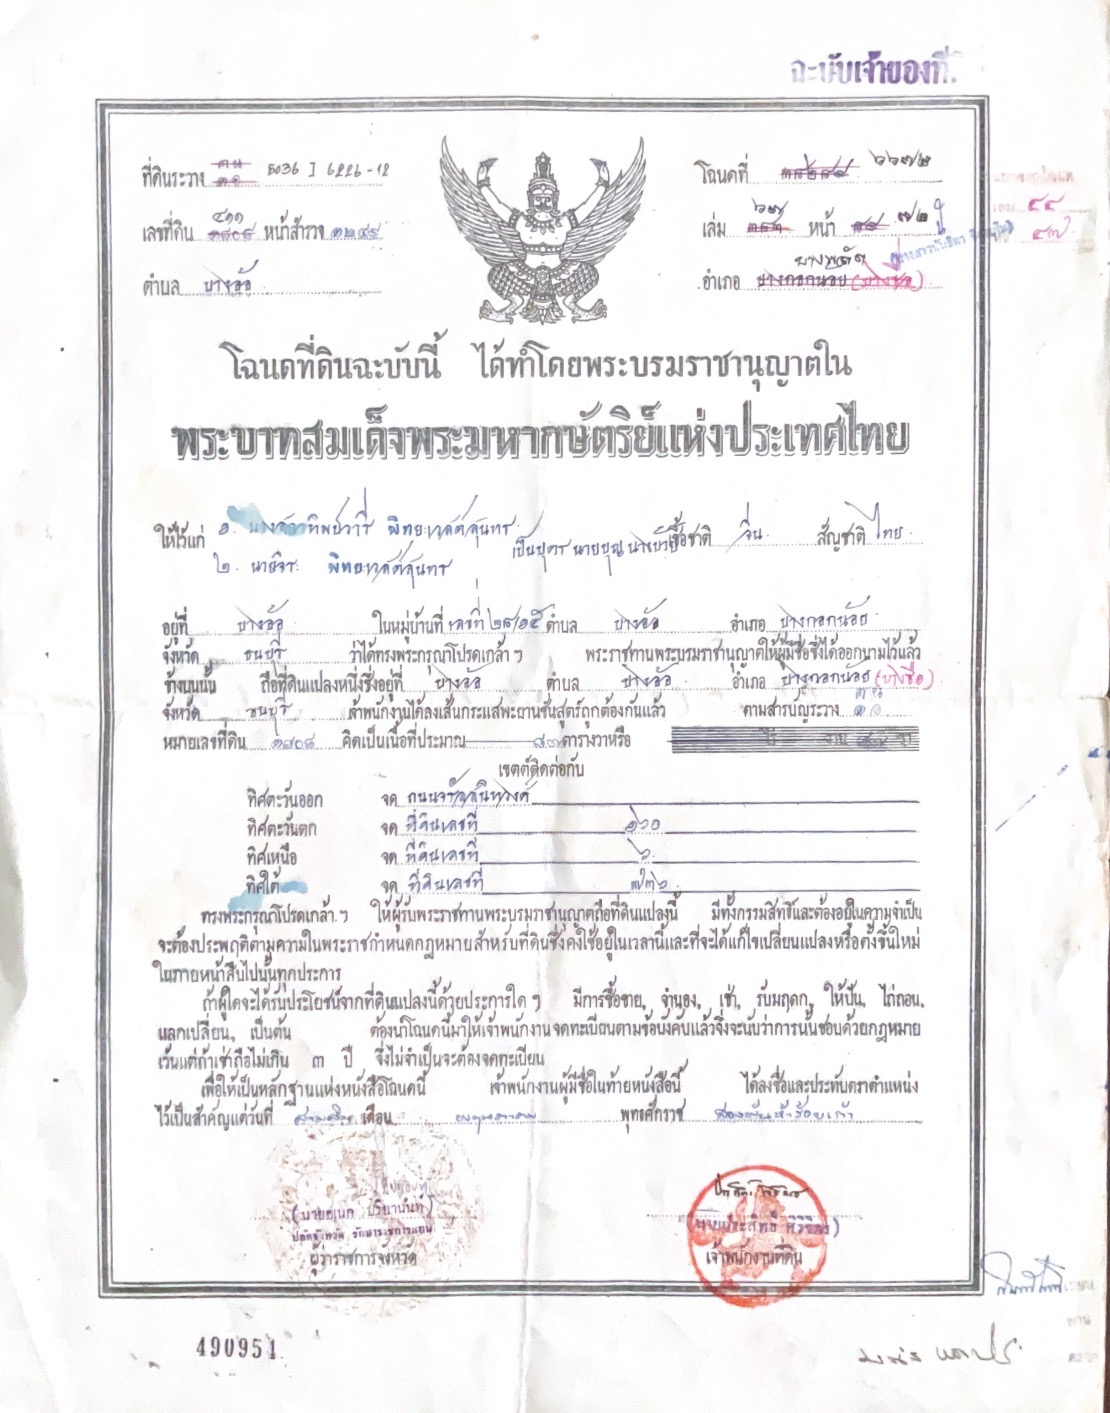 ฉะบับเจ้าของที่ดิน
ที่ดินระวาง 5036 I 6226-12
โฉนดที่ ๖๖๗๒
เลขที่ดิน ๔๑๑ ๑๘๐๘ หน้าสำรวจ ๑๒๔๙
เล่ม ๖๗ หน้า ๗๒
ตำบล บางอ้อ
อำเภอ บางพลัด บางกอกน้อย (บางซื่อ)
๔๔
๔๗
โฉนดที่ดินฉะบับนี้ ได้ทำโดยพระบรมราชานุญาตใน
พระบาทสมเด็จพระมหากษัตริย์แห่งประเทศไทย
ให้ไว้แก่ ๑. ทิพย์วารี พิทยะเวสด์สุนทร เป็นบุตร นายบุญ เชื้อชาติ จีน สัญชาติ ไทย
๒. นายจิระ พิทยะเวสด์สุนทร
อยู่ที่ บางอ้อ ในหมู่บ้านที่ เลขที่ ตำบล บางอ้อ อำเภอ บางกอกน้อย
จังหวัด ธนบุรี ว่าได้ทรงพระกรุณาโปรดเกล้า ฯ พระราชทานพระบรมราชานุญาตให้ผู้มีชื่อซึ่งได้ออกนามไว้แล้ว
ข้างบนนั้น ถือที่ดินแปลงหนึ่งซึ่งอยู่ที่ บางอ้อ ตำบล บางอ้อ อำเภอ บางกอกน้อย (บางซื่อ)
จังหวัด ธนบุรี เจ้าพนักงานได้ลงเส้นกระแสพะยานชันสูตร์ถูกต้องกันแล้ว ตามสารบัญระวาง
หมายเลขที่ดิน ๑๘๐๘ คิดเป็นเนื้อที่ประมาณ ๘๗ ตารางวาหรือ ไร่ งาน วา
เขตต์ติดต่อกับ
ทิศตะวันออก จด ถนนจรัญสนิทวงศ์
ทิศตะวันตก จด ที่ดินเลขที่ ๑๖๐
ทิศเหนือ จด ที่ดินเลขที่ ๖
ทิศใต้ จด ที่ดินเลขที่ ๗๓๖
ทรงพระกรุณาโปรดเกล้า ฯ ให้ผู้รับพระราชทานพระบรมราชานุญาตถือที่ดินแปลงนี้ มีทั้งกรรมสิทธิ์และต้องอยู่ในความจำเป็น
จะต้องประพฤติตามความในพระราชกำหนดกฎหมายสำหรับที่ดินซึ่งคงใช้อยู่ในเวลานี้และที่จะได้แก้ไขเปลี่ยนแปลงหรือตั้งขึ้นใหม่
ในภายหน้าสืบไปนั้นทุกประการ
ถ้าผู้ใดจะได้รับประโยชน์จากที่ดินแปลงนี้ด้วยประการใด ๆ มีการซื้อขาย, จำนอง, เช่า, รับมฤดก, ให้ปัน, ไถ่ถอน,
แลกเปลี่ยน, เป็นต้น ต้องนำโฉนดนี้มาให้เจ้าพนักงานจดทะเบียนตามข้อบังคับแล้วจึ่งจะนับว่าการนั้นชอบด้วยกฎหมาย
เว้นแต่ถ้าเช่าถือไม่เกิน ๓ ปี จึ่งไม่จำเป็นจะต้องจดทะเบียน
เพื่อให้เป็นหลักฐานแห่งหนังสือโฉนดนี้ เจ้าพนักงานผู้มีชื่อในท้ายหนังสือนี้ ได้ลงชื่อและประทับตราตำแหน่ง
ไว้เป็นสำคัญแต่วันที่ สามสิบ เดือน พฤษภาคม พุทธศักราช สองพันห้าร้อยเก้า
(นายเอนก ปริยานนท์)
ปลัดจังหวัด รักษาราชการแทน
ผู้ว่าราชการจังหวัด
(นายประสิทธิ์ ศิริจิตร)
เจ้าพนักงานที่ดิน
490951